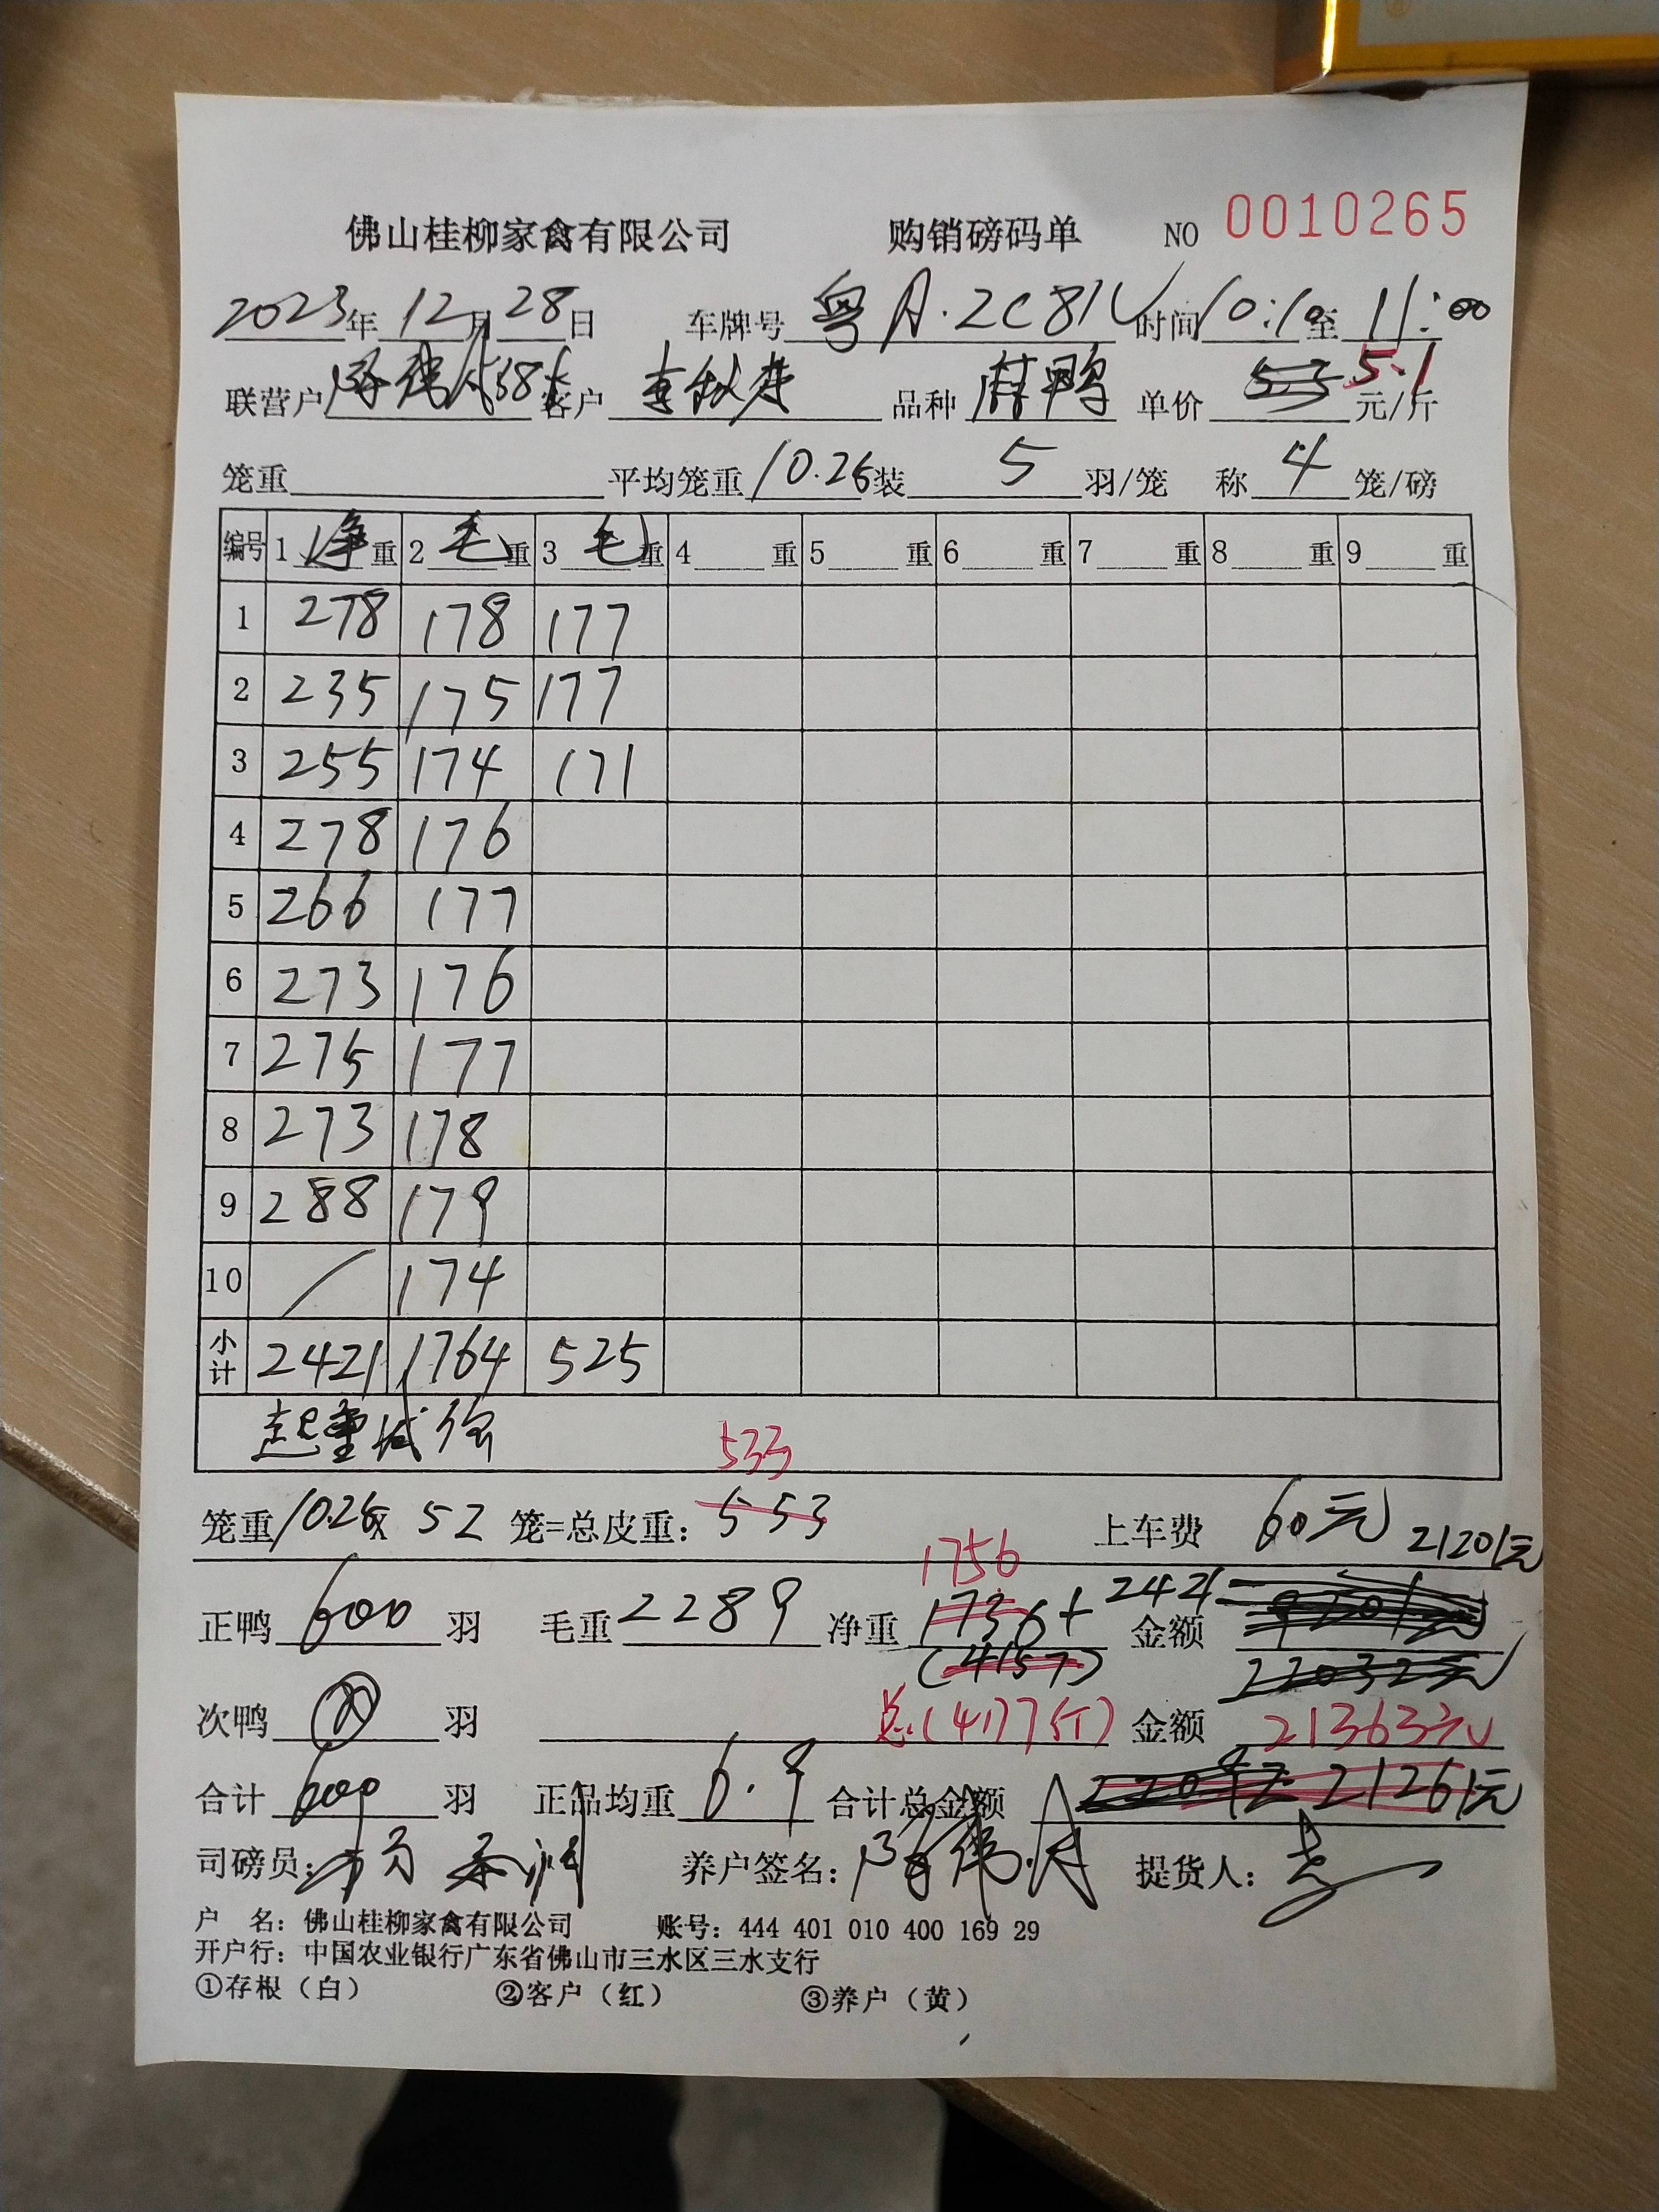 佛山桂柳家禽有限公司 购销磅码单 NO 0010265
2023年 12月 28日 车牌号 粤A·2C81V 时间 10:10 至 11:00
联营户 客户 品种 麻鸭 单价 5.1 元/斤
笼重 平均笼重 10.26 装 5 羽/笼 称 4 笼/磅
编号 1 净 重 2 毛 重 3 毛 重 4 重 5 重 6 重 7 重 8 重 9 重
1 278 178 177
2 235 175 177
3 255 174 171
4 278 176
5 266 177
6 273 176
7 275 177
8 273 178
9 288 179
10 / 174
小计 2421 1764 525
533
笼重 10.26 x 52 笼=总皮重: 553 上车费 60元 21201元
1756
正鸭 600 羽 毛重 2289 净重 1736 + 2421 金额
(4157) 22032元
次鸭 羽 总(4177斤) 金额 21363元
合计 600 羽 正品均重 6.9 合计总金额 21261元
司磅员: 养户签名: 提货人:
户 名: 佛山桂柳家禽有限公司 账号: 444 401 010 400 169 29
开户行: 中国农业银行广东省佛山市三水区三水支行
①存根（白） ②客户（红） ③养户（黄）